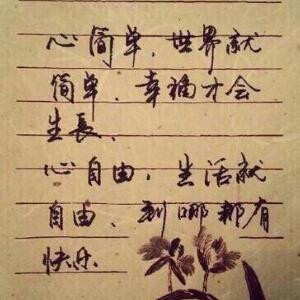 心简单，世界就
简单，幸福才会
生長、
心自由，生活就
自由、到哪都有
快乐